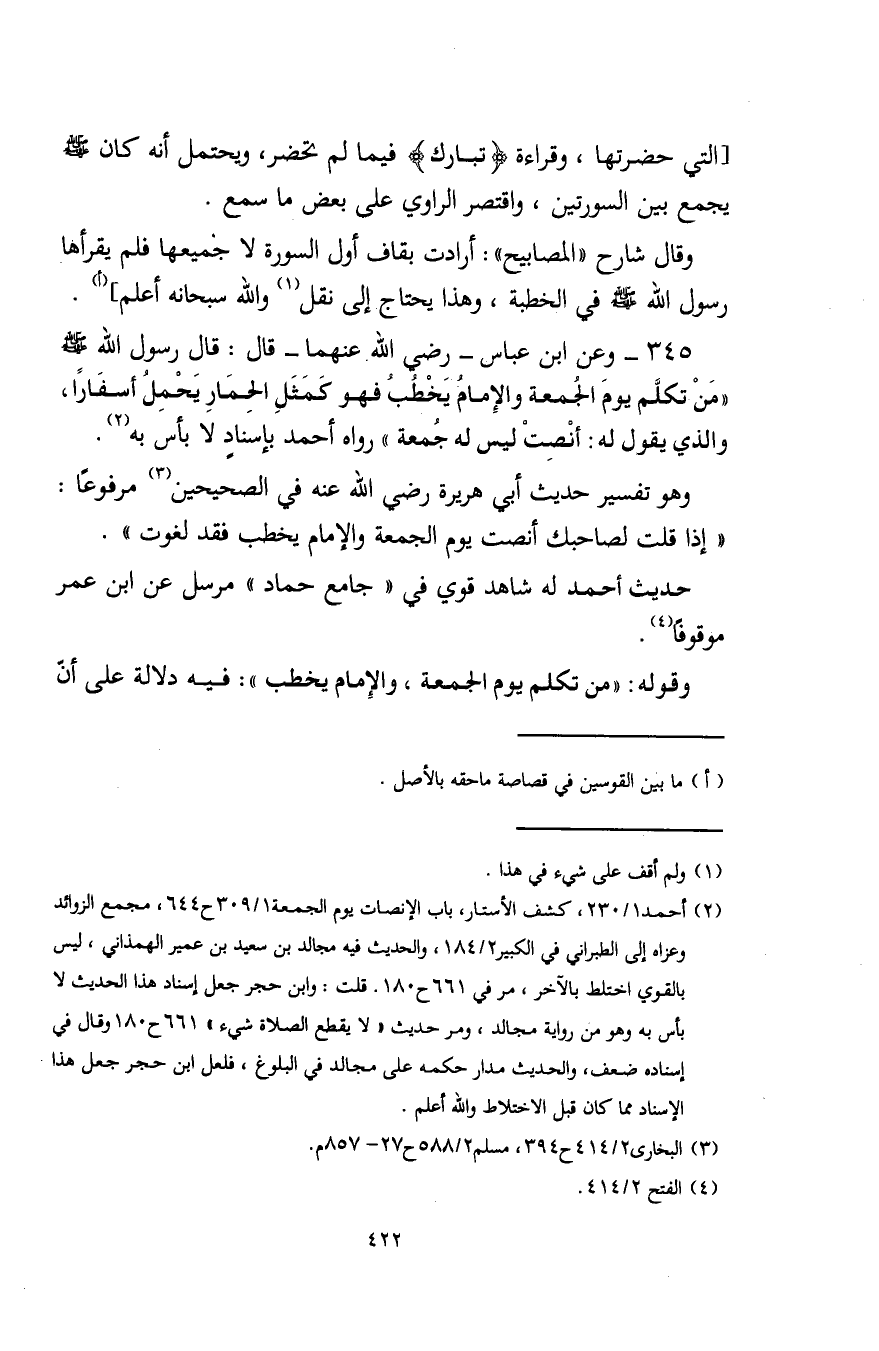 [التي حضرتها ، وقراءة ﴿تبارك﴾ فيما لم تحضر، ويحتمل أنه كان ﷺ
يجمع بين السورتين ، واقتصر الراوي على بعض ما سمع .
وقال شارح «المصابيح»: أرادت بقاف أول السورة لا جميعها فلم يقرأها
رسول الله ﷺ في الخطبة ، وهذا يحتاج إلى نقل(١) والله سبحانه أعلم](أ) .
٣٤٥ ـ وعن ابن عباس ـ رضي الله عنهما ـ قال : قال رسول الله ﷺ
«مَنْ تكلَّم يومَ الجُمعة والإمامُ يَخْطُبُ فهو كَمَثَلِ الحِمَارِ يَحْمِلُ أسفَارًا،
والذي يقول له: أنْصِتْ ليس له جُمعة » رواه أحمد بإسنادٍ لا بأس به(٢).
وهو تفسير حديث أبي هريرة رضي الله عنه في الصحيحين(٣) مرفوعًا :
« إذا قلت لصاحبك أنصت يوم الجمعة والإمام يخطب فقد لغوت » .
حديث أحمد له شاهد قوي في « جامع حماد » مرسل عن ابن عمر
موقوفًا(٤).
وقوله: «من تكلم يوم الجمعة ، والإمام يخطب »: فيه دلالة على أنّ
( أ ) ما بين القوسين في قصاصة ماحقه بالأصل .
(١) ولم أقف على شيء في هذا .
(٢) أحمد٢٣٠/١ ، كشف الأستار، باب الإنصات يوم الجمعة٣٠٩/١ح٦٤٤، مجمع الزوائد
وعزاه إلى الطبراني في الكبير١٨٤/٢ ، والحديث فيه مجالد بن سعيد بن عمير الهمذاني ، ليس
بالقوي اختلط بالآخر ، مر في ٦٦١ح١٨٠. قلت : وابن حجر جعل إسناد هذا الحديث لا
بأس به وهو من رواية مجالد ، ومر حديث « لا يقطع الصلاة شيء » ٦٦١ح١٨٠وقال في
إسناده ضعف، والحديث مدار حكمه على مجالد في البلوغ ، فلعل ابن حجر جعل هذا
الإسناد مما كان قبل الاختلاط والله أعلم .
(٣) البخارى٤١٤/٢ح٣٩٤، مسلم٥٨٨/٢ح٢٧- ٨٥٧م.
(٤) الفتح ٤١٤/٢.
٤٢٢